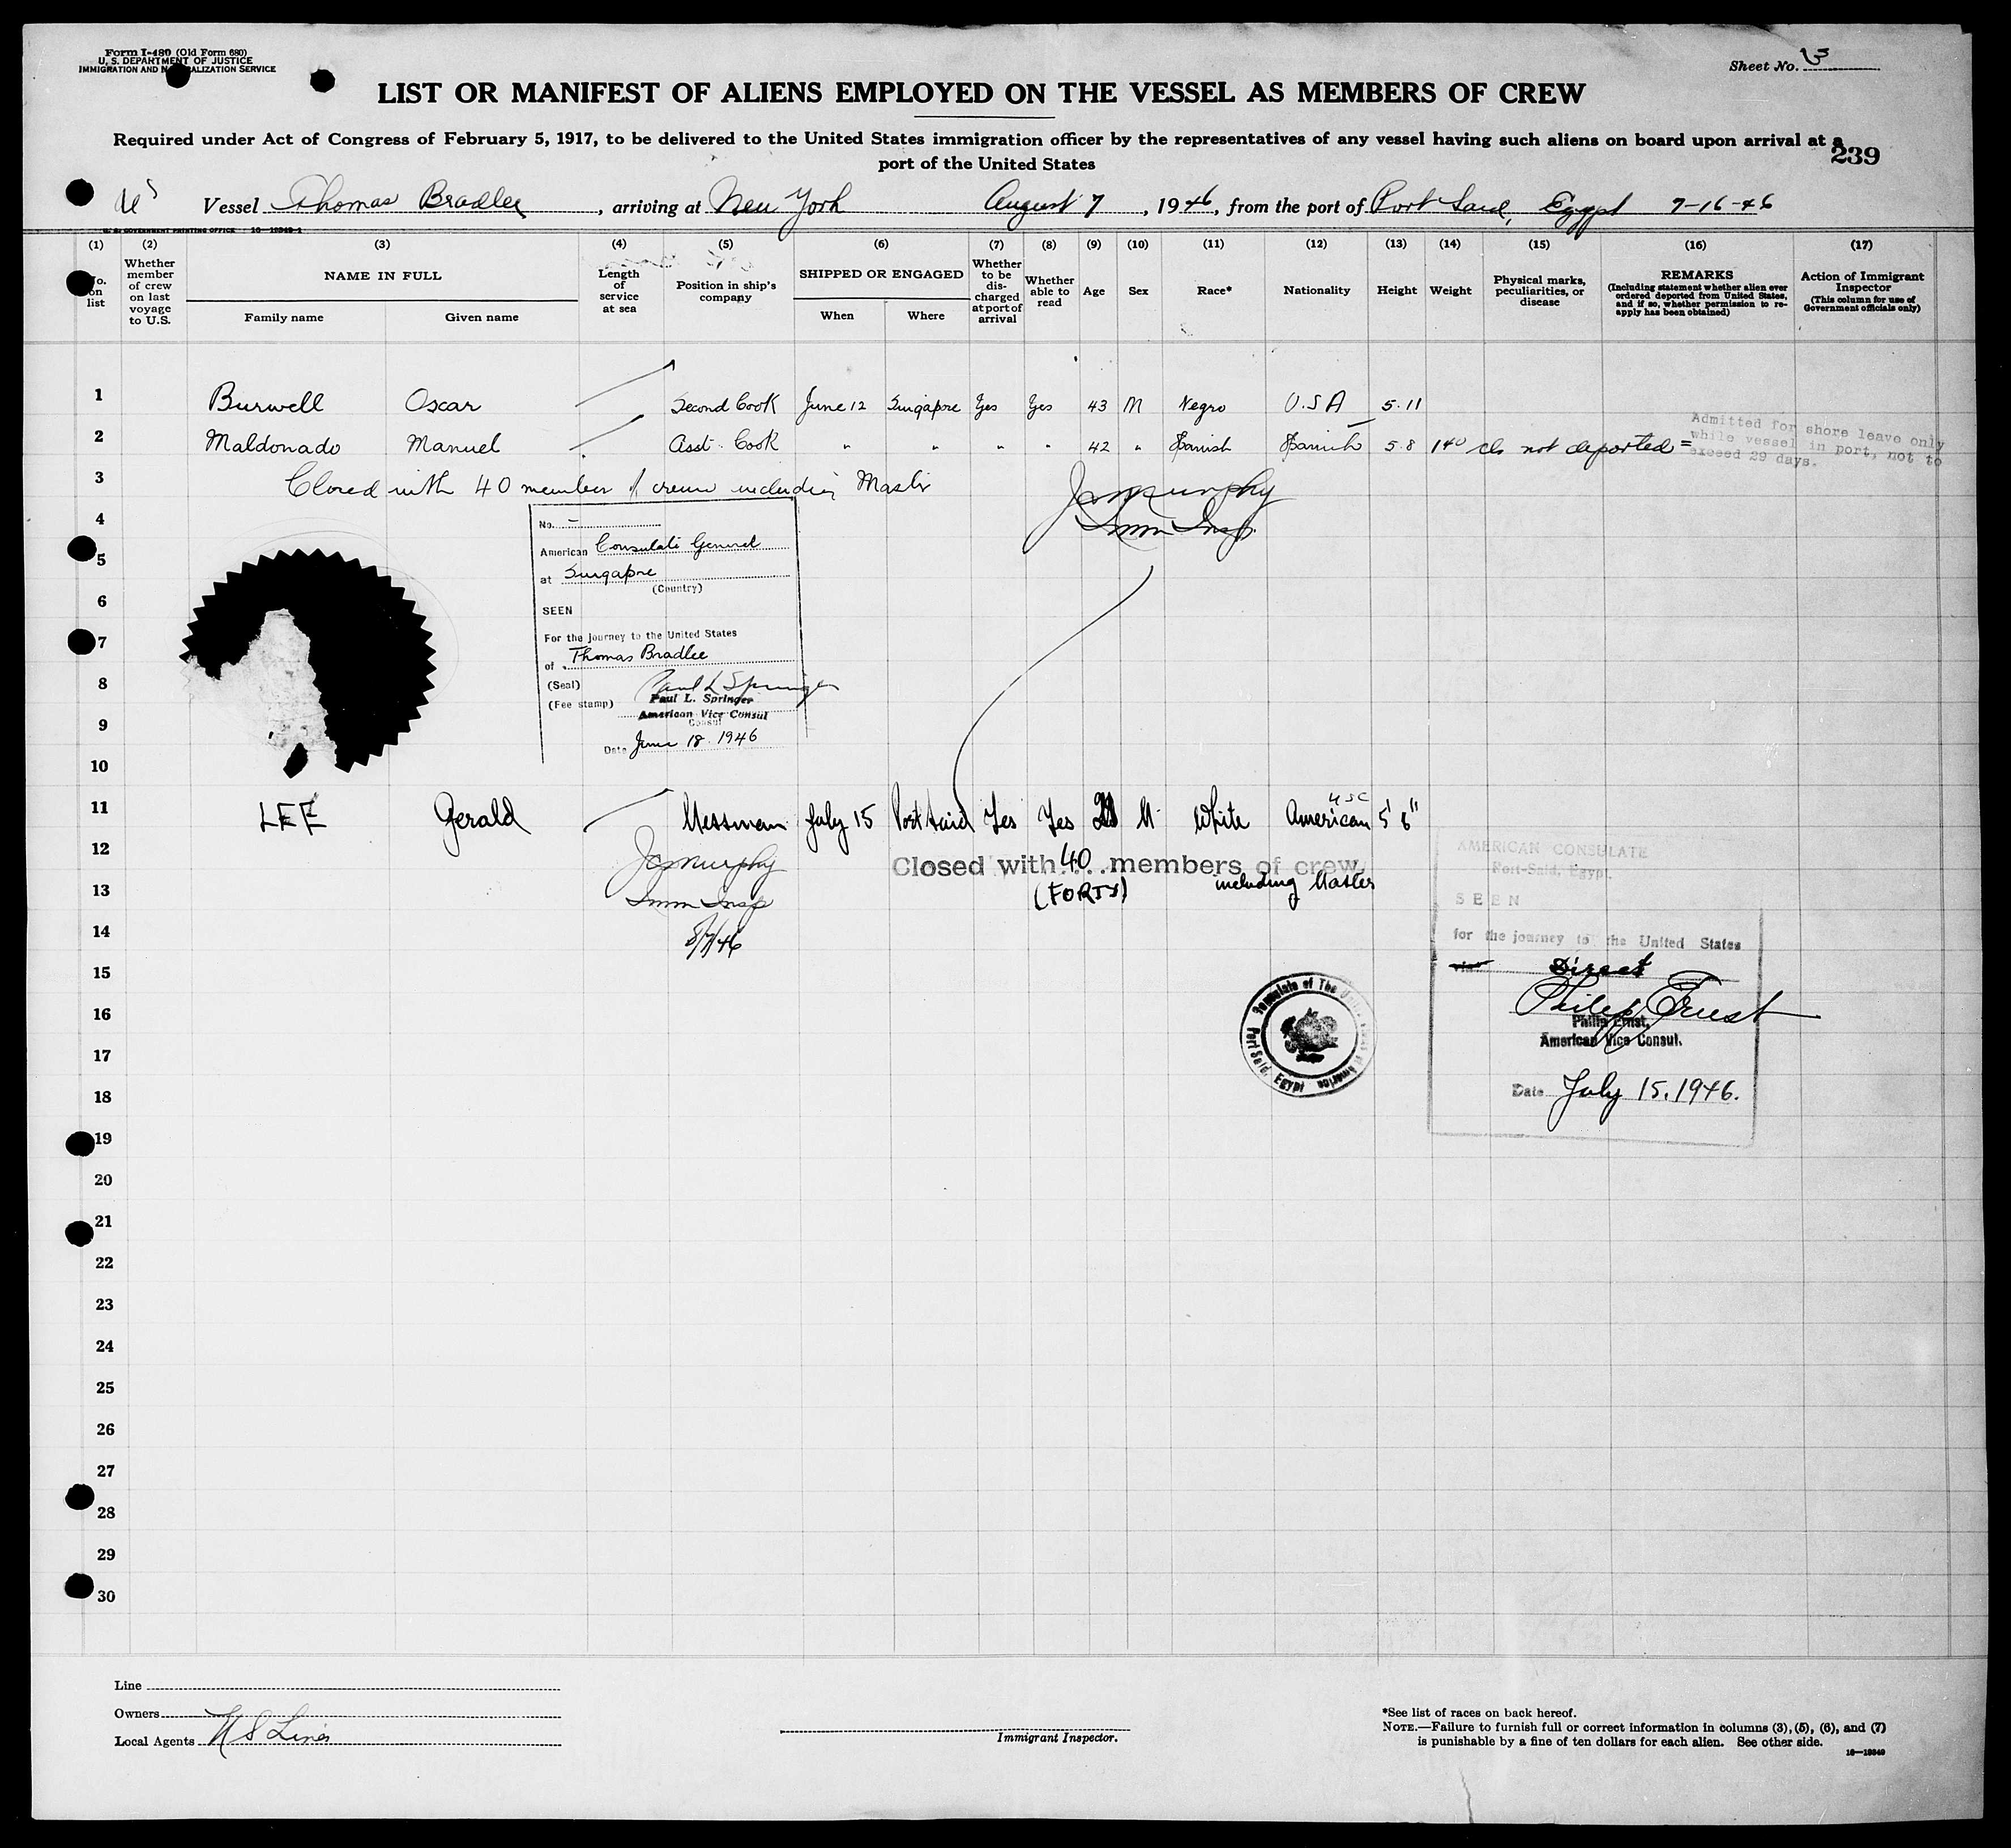 Form I-480 (Old Form 680)
U. S. DEPARTMENT OF JUSTICE
IMMIGRATION AND NATURALIZATION SERVICE
Sheet No. 3
LIST OR MANIFEST OF ALIENS EMPLOYED ON THE VESSEL AS MEMBERS OF CREW
Required under Act of Congress of February 5, 1917, to be delivered to the United States immigration officer by the representatives of any vessel having such aliens on board upon arrival at a
port of the United States
239
US Vessel Thomas Bradlee, arriving at New York August 7, 1946, from the port of Port Said, Egypt 7-16-46
U. S. GOVERNMENT PRINTING OFFICE 16—19349-1
(1) (2) (3) (4) (5) (6) (7) (8) (9) (10) (11) (12) (13) (14) (15) (16) (17)
No. on list
Whether member of crew on last voyage to U.S.
NAME IN FULL
Family name Given name
Length of service at sea
Position in ship's company
SHIPPED OR ENGAGED
When Where
Whether to be discharged at port of arrival
Whether able to read
Age
Sex
Race*
Nationality
Height
Weight
Physical marks, peculiarities, or disease
REMARKS
(Including statement whether alien ever ordered deported from United States, and if so, whether permission to re-apply has been obtained)
Action of Immigrant Inspector
(This column for use of Government officials only)
1 Burwell Oscar Second Cook June 12 Singapore Yes Yes 43 M Negro U.S.A 5-11
2 Maldonado Manuel Asst. Cook " " " " 42 " Spanish Spanish 5-8 140 not deported =
Admitted for shore leave only
while vessel in port, not to
exceed 29 days.
3 Closed with 40 member of crew including Master
JC Murphy
Imm Insp.
4
5
6
7
8
9
10
No. —
American Consulate General
at Singapore
(Country)
SEEN
For the journey to the United States
of Thomas Bradlee
(Seal) Paul L Springer
(Fee stamp) Paul L. Springer
American Vice Consul
Consul
Date June 18. 1946
11 LEE Gerald Messman July 15 Port Said Yes Yes M White American USC 5' 6"
12
13
14
15
16
17
18
19
20
21
22
23
24
25
26
27
28
29
30
JC Murphy
Imm Insp
8/7/46
Closed with 40 members of crew
(FORTY) including Master
AMERICAN CONSULATE
Port-Said, Egypt.
SEEN
for the journey to the United States
via Direct
Philip Ernst
Philip Ernst,
American Vice Consul.
Date July 15. 1946.
Consulate of The United States of America
Port Said, Egypt
Line
Owners
Local Agents U S Lines
Immigrant Inspector.
*See list of races on back hereof.
NOTE.—Failure to furnish full or correct information in columns (3), (5), (6), and (7)
is punishable by a fine of ten dollars for each alien. See other side.
16—19349